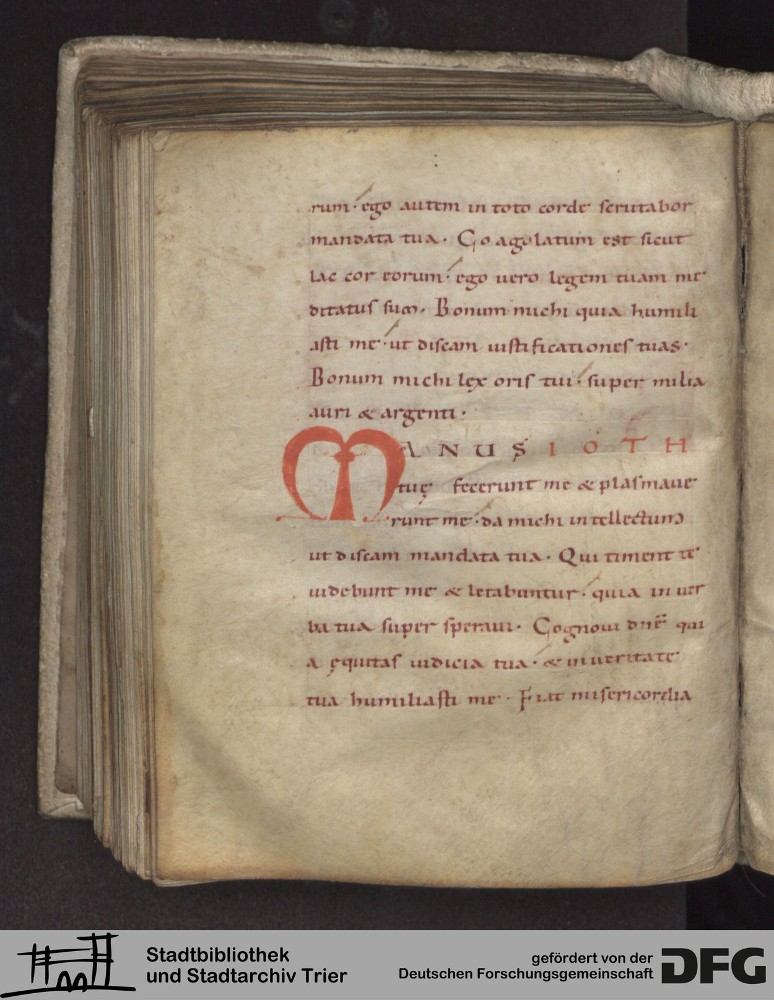 rum · ego autem in toto corde scrutabor
mandata tua · Coagolatum est sicut
lac cor eorum · ego uero legem tuam me
ditatus sum · Bonum michi quia humili
asti me · ut discam iustificationes tuas ·
Bonum michi lex oris tui · super milia
auri & argenti ·
MANUS IOTH
tuę fecerunt me & plasmaue
runt me · da michi intellectum
ut discam mandata tua · Qui timent te
uidebunt me & letabuntur · quia in uer
ba tua super speraui · Cognoui dn̄e qui
a ęquitas iudicia tua · & in ueritate
tua humiliasti me · Fiat misericordia
Stadtbibliothek
und Stadtarchiv Trier
gefördert von der
Deutschen Forschungsgemeinschaft
DFG